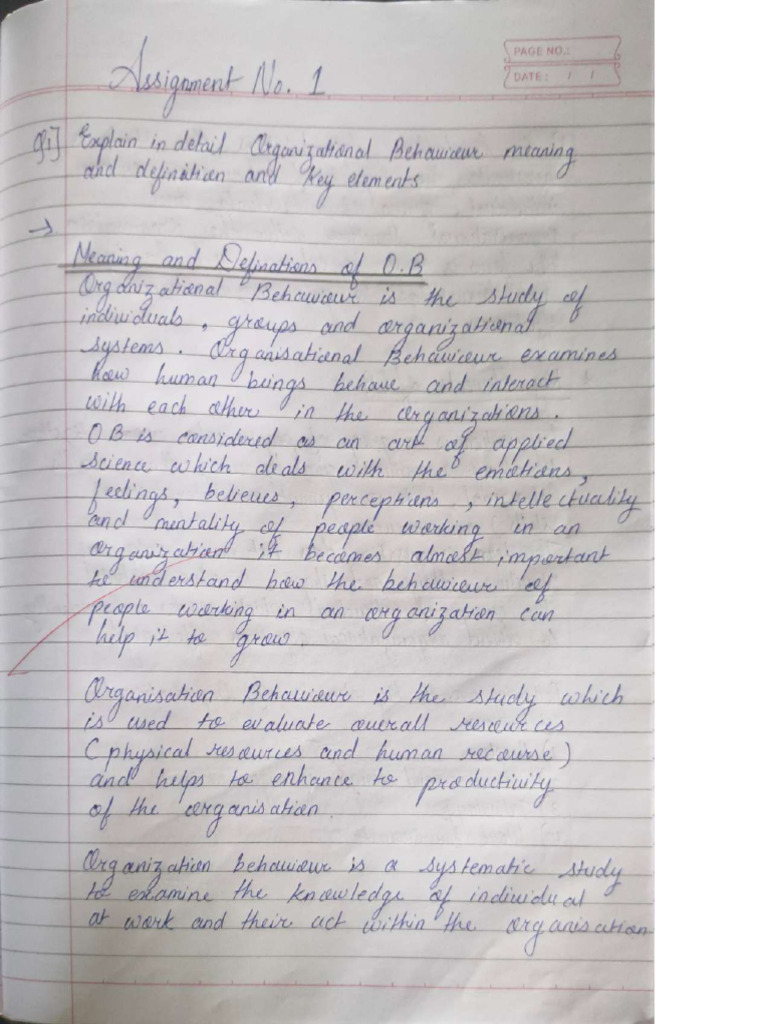 PAGE NO.:
DATE: / /
Assignment No. 1
Q1] Explain in detail Organizational Behaviour meaning
and defination and Key elements
→
Meaning and Definations of O.B
Organizational Behaviour is the study of
individuals, groups and organizational
systems. Organisational Behaviour examines
how human beings behave and interact
with each other in the organizations.
OB is considered as an art of applied
science which deals with the emotions,
feelings, believes, perceptions, intellectuality
and mentality of people working in an
organization it becomes almost important
to understand how the behaviour of
people working in an organization can
help it to grow.
Organisation Behaviour is the study which
is used to evaluate overall resources
(physical resources and human recourse)
and helps to enhance to productivity
of the organisation.
Organization behaviour is a systematic study
to examine the knowledge of individual
at work and their act within the organisation